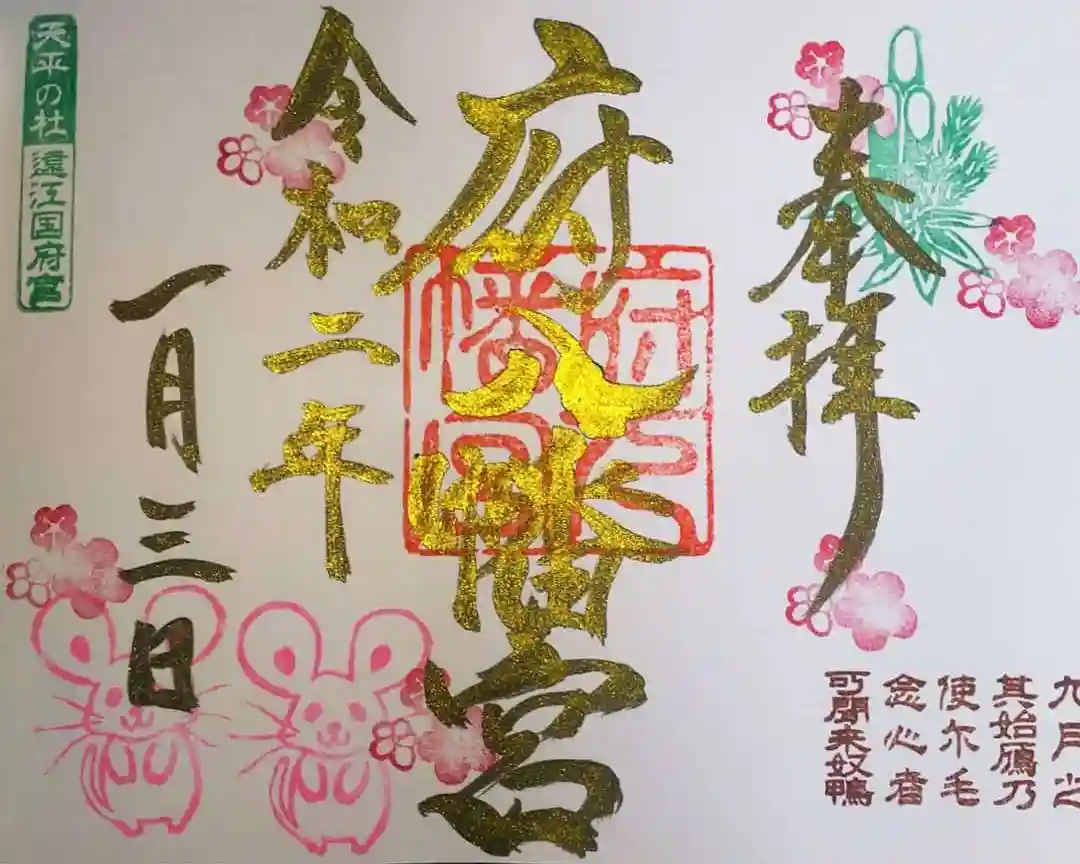 奉拝
九月之
其始鴈乃
使尓毛
念心者
可聞来奴鴨
府八幡宮
府八
幡宮
令和二年
一月三日
天平の杜 遠江国府宮